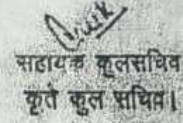 सहायक कुलसचिव
कृते कुल सचिव।